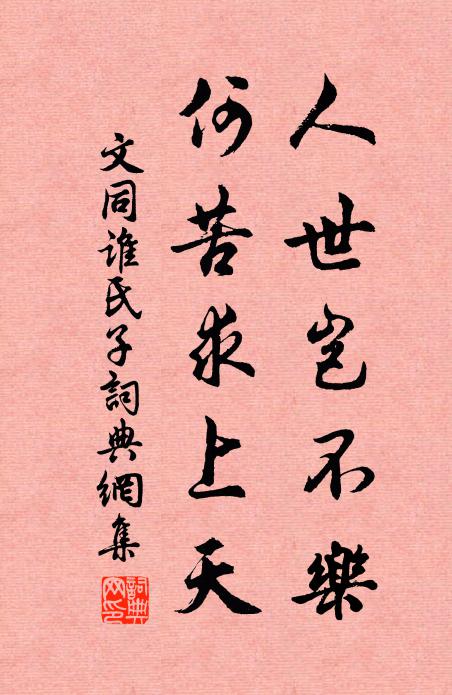 人世豈不樂
何苦求上天
文同誰氏子詞典網集
詞典網印